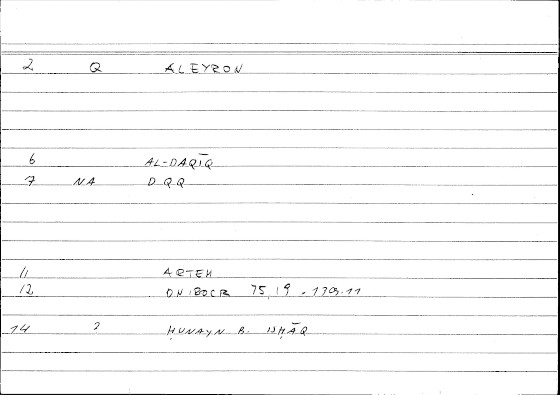 2 Q ALEYRON
6 AL-DAQĪQ
7 NA DQQ
11 ARTEM
12 ONIROCR 75,19 -
14 2 ḤUNAYN B. ISḤĀQ